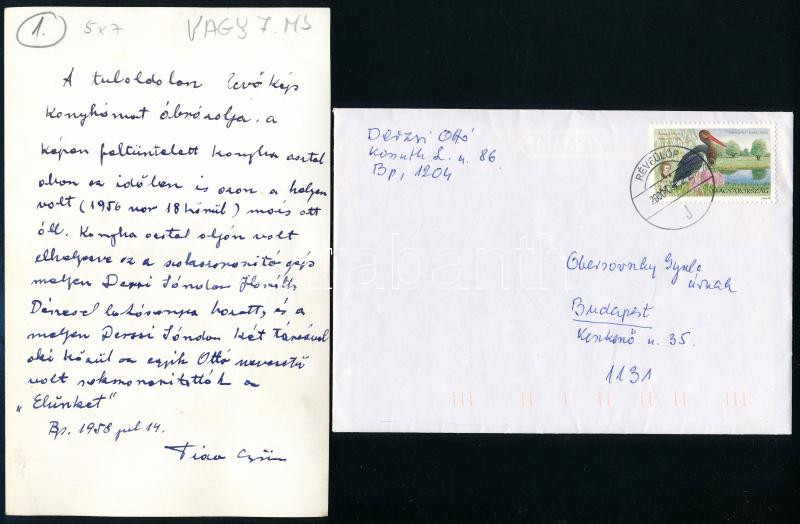 1.
5x7
VAGY 7. MS
A tuloldolon levő kép
konyhámat ábrázolja. a
képen feltüntetett konyha asztal
abon az időben is azon a helyen
volt (1956 nov 18 körül) mais ott
áll. Konyha asztal alján volt
elhelyezve ez a sokszorositó gép
melyen Derzsi Sándor
lakásomra hozott, és a
melyen Derzsi Sándor két társával
aki közül az egyik Ottó nevezetű
volt sokszorositották a
"Élünket"
Bp. 1958 jul 14.
Derzsi Ottó
Kossuth L. u. 86
Bp, 1204
RÉVFÜLÖP
J
MAGYARORSZÁG
Obersovszky Gyula
úrnak
Budapest
u. 35.
1131